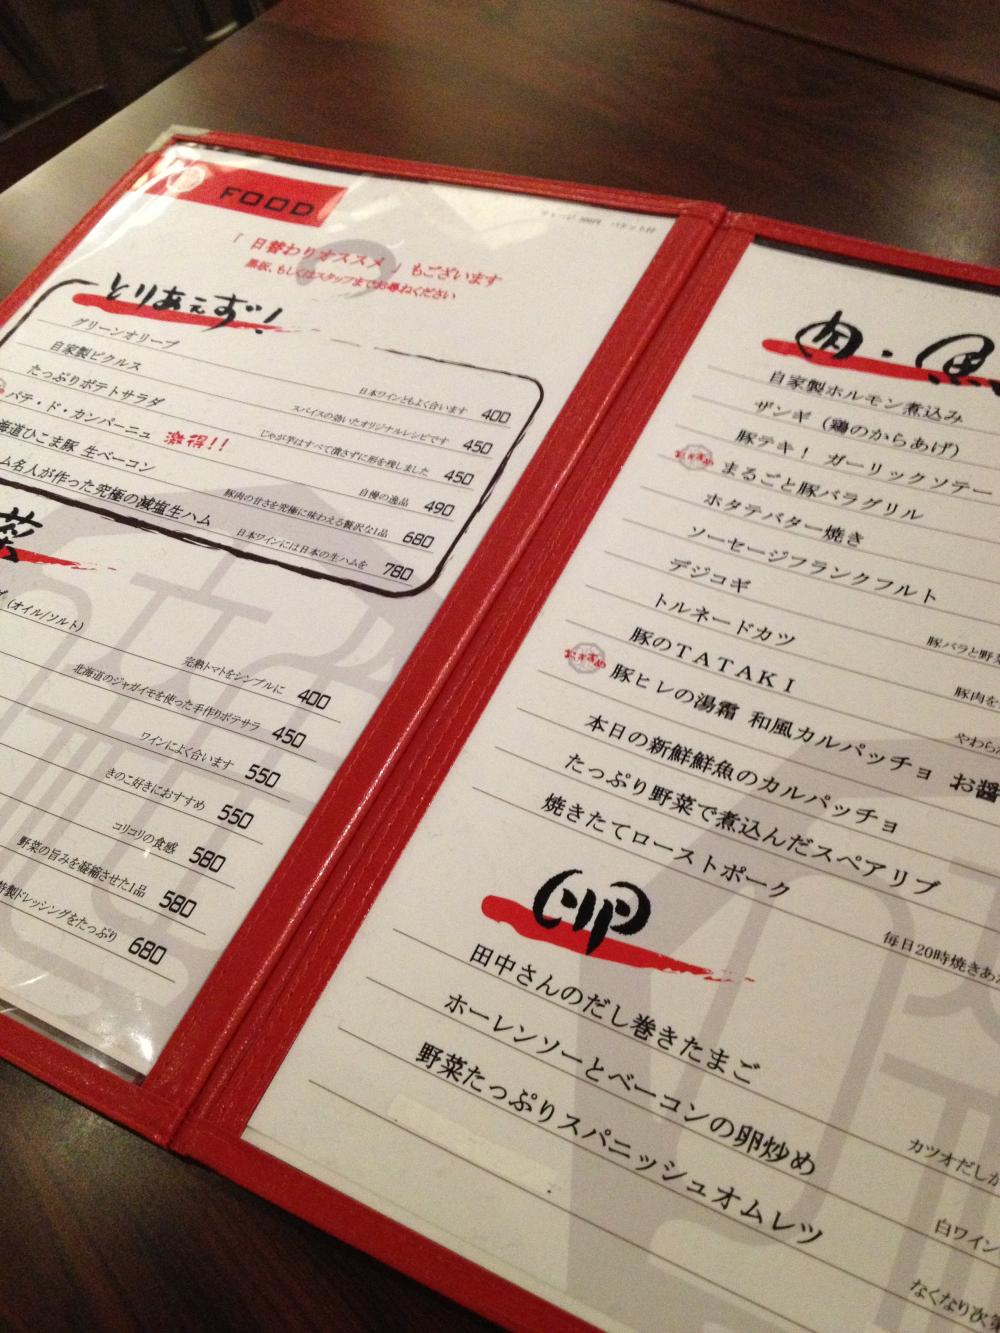 FOOD
チャージ 300円 バケット付
「日替わりオススメ」もございます
黒板、もしくはスタッフまでお尋ねください
とりあえず!
グリーンオリーブ 日本ワインともよく合います 400
自家製ピクルス スパイスの効いたオリジナルレシピです 450
たっぷりポテトサラダ じゃが芋はすべて潰さずに形を残しました 450
パテ・ド・カンパーニュ 激得!! 自慢の逸品 490
海道ひこま豚 生ベーコン 豚肉の甘さを究極に味わえる贅沢な1品 680
ム名人が作った究極の減塩生ハム 日本ワインには日本の生ハムを 780
菜
(オイル/ソルト) 完熟トマトをシンプルに 400
北海道のジャガイモを使った手作りポテサラ 450
ワインによく合います 550
きのこ好きにおすすめ 550
コリコリの食感 580
野菜の旨みを凝縮させた1品 580
特製ドレッシングをたっぷり 680
肉・魚
自家製ホルモン煮込み
ザンギ(鶏のからあげ)
豚テキ! ガーリックソテー
おすすめ まるごと豚バラグリル
ホタテバター焼き
ソーセージフランクフルト
デジコギ 豚バラと野菜
トルネードカツ 豚肉を
豚のTATAKI やわら
おすすめ 豚ヒレの湯霜 和風カルパッチョ お醤
本日の新鮮鮮魚のカルパッチョ
たっぷり野菜で煮込んだスペアリブ
焼きたてローストポーク 毎日20時焼きあ
卵
田中さんのだし巻きたまご カツオだしが
ホーレンソーとベーコンの卵炒め 白ワイン
野菜たっぷりスパニッシュオムレツ なくなり次第